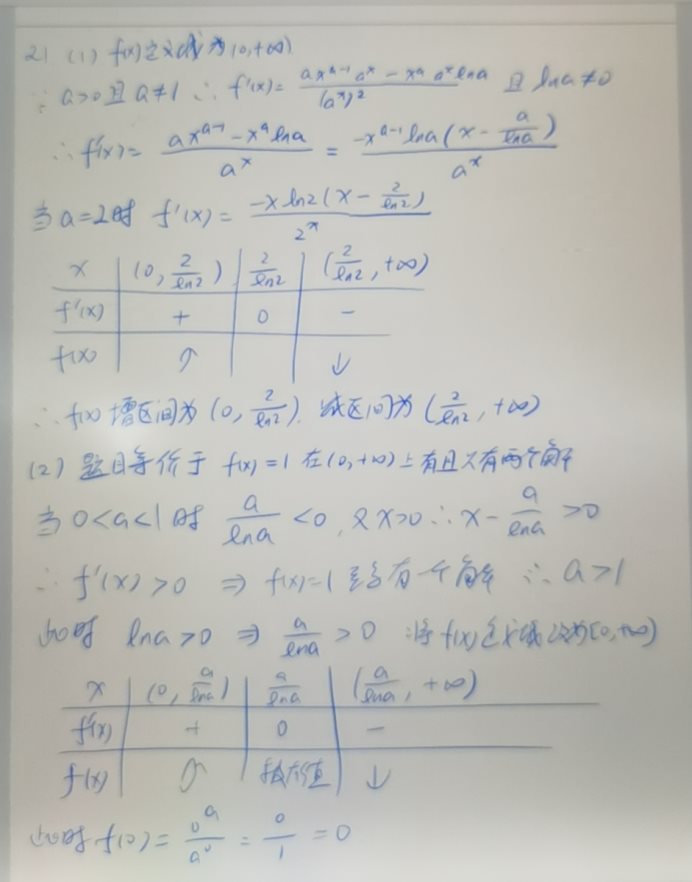 21 (1) f(x)定义域为(0,+∞)
∵ a>0且a≠1 ∴ f'(x)= (ax^(a-1) a^x - x^a a^x lna)/(a^x)^2 且 lna≠0
∴ f'(x)= (ax^(a-1) - x^a lna)/a^x = (-x^(a-1) lna (x - a/lna))/a^x
当a=2时 f'(x)= (-x ln2 (x - 2/ln2))/2^x
x | (0, 2/ln2) | 2/ln2 | (2/ln2, +∞)
f'(x) | + | 0 | -
f(x) | ↑ | | ↓
∴ f(x)增区间为(0, 2/ln2). 减区间为(2/ln2, +∞)
(2) 题目等价于 f(x)=1 在(0,+∞)上有且只有两个解
当0<a<1时 a/lna <0, 又x>0 ∴ x - a/lna >0
∴ f'(x)>0 ⇒ f(x)=1 至多有一个解 ∴ a>1
此时 lna>0 ⇒ a/lna >0 将f(x)定义域改为[0,+∞)
x | (0, a/lna) | a/lna | (a/lna, +∞)
f'(x) | + | 0 | -
f(x) | ↑ | 极大值 | ↓
此时f(0)= 0^a/a^0 = 0/1 =0